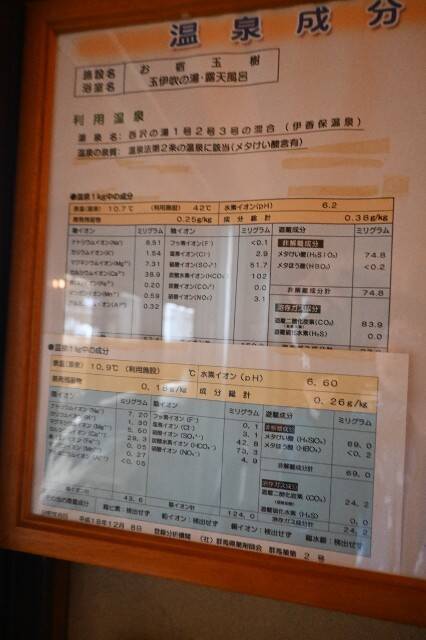 温泉成分
施設名 お宿玉樹
浴室名 玉伊吹の湯・露天風呂
利用温泉
温泉名：西沢の湯1号2号3号の混合（伊香保温泉）
温泉の泉質：温泉法第2条の温泉に該当(メタけい酸含有)
●温泉1kg中の成分
泉温(源泉) 10.7℃ (利用施設) 42℃ 水素イオン(pH) 6.2
蒸発残留物 0.25g/kg 成分総計 0.38g/kg
陽イオン ミリグラム 陰イオン ミリグラム 遊離成分 ミリグラム
ナトリウムイオン(Na⁺) 8.51 フッ素イオン(F⁻) <0.1 非解離成分
カリウムイオン(K⁺) 1.54 塩素イオン(Cl⁻) 2.9 メタけい酸(H₂SiO₃) 74.8
マグネシウムイオン(Mg²⁺) 7.31 硫酸イオン(SO₄²⁻) 51.7 メタほう酸(HBO₂) <0.2
カルシウムイオン(Ca²⁺) 38.9 炭酸水素イオン(HCO₃⁻) 102
0.20 炭酸イオン(CO₃²⁻) 0.0 非解離成分計 74.8
マンガンイオン(Mn²⁺) 0.59 硝酸イオン(NO₃⁻) 3.1 溶存ガス成分
0.32 遊離二酸化炭素(CO₂) 83.9
遊離硫化水素(H₂S) 0.0
●温泉1kg中の成分
泉温(源泉) 10.9℃ (利用施設) ℃ 水素イオン(pH) 6.60
蒸発残留物 0.18g/kg 成分総計 0.26g/kg
陽イオン ミリグラム 陰イオン ミリグラム 遊離成分 ミリグラム
ナトリウムイオン(Na⁺) 7.20 フッ素イオン(F⁻) 0.1 非解離成分
カリウムイオン(K⁺) 1.30 塩素イオン(Cl⁻) 3.1 メタけい酸(H₂SiO₃) 69.0
5.50 硫酸イオン(SO₄²⁻) 42.8 メタほう酸(HBO₂) <0.2
29.3 炭酸水素イオン(HCO₃⁻) 73.3
0.05 硝酸イオン(NO₃⁻) 4.9 非解離成分計 69.0
0.27 溶存ガス成分
<0.05 遊離二酸化炭素(CO₂) 24.2
遊離硫化水素(H₂S) 0.0
陽イオン計 43.6 陰イオン計 124.0 溶存ガス成分計 24.2
その他の微量成分 総ヒ素：検出せず 鉛イオン：検出せず 銅イオン：検出せず 総水銀：検出せず
平成18年12月8日 登録分析機関 (社)群馬県薬剤師会 群馬薬第2号